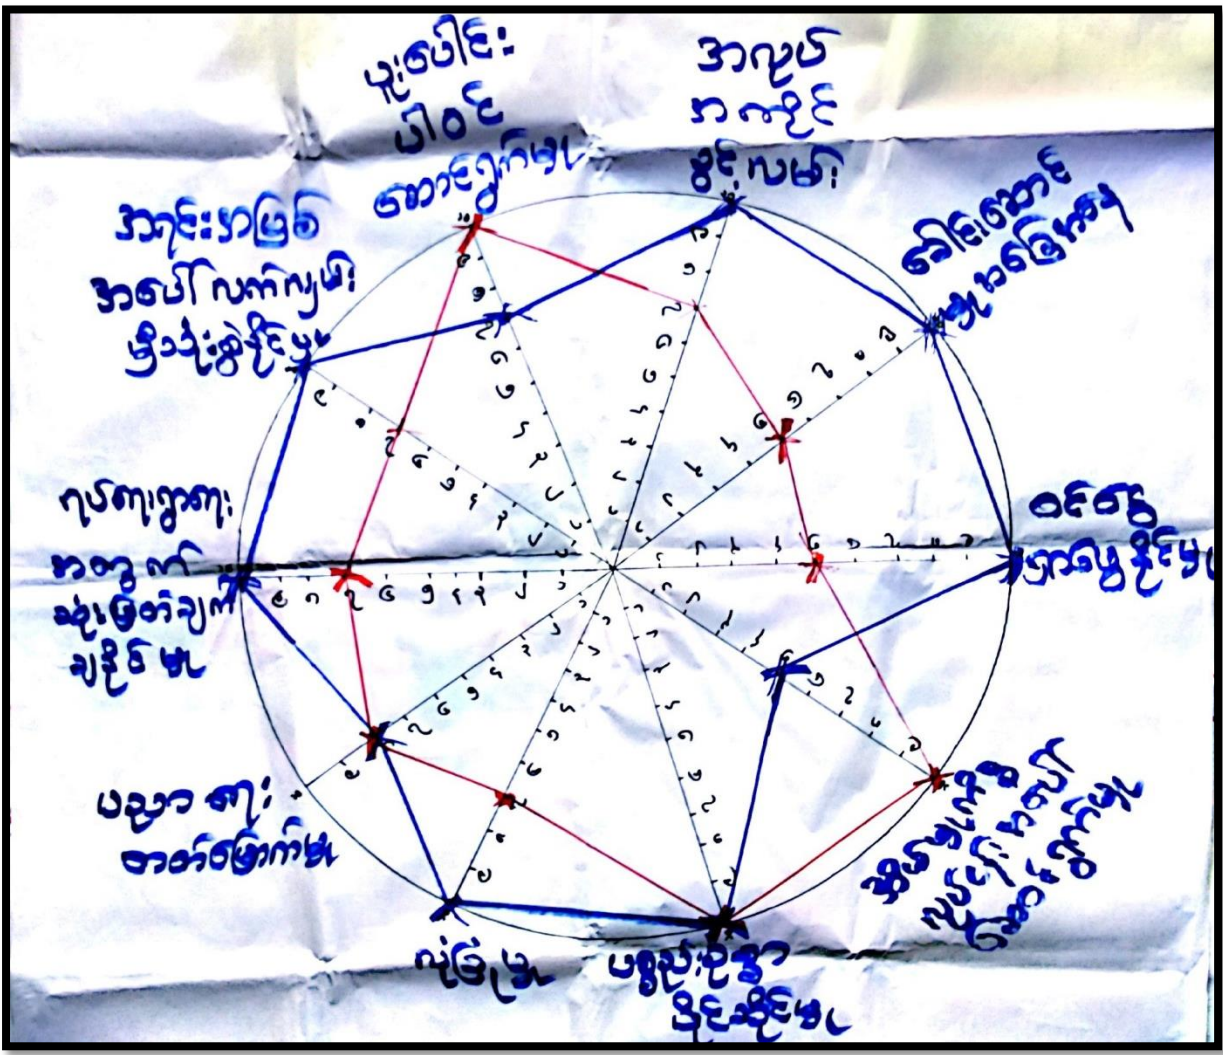 ပူးပေါင်း
ပါဝင်
ဆောင်ရွက်မှု
အလုပ်
အကိုင်
ခွင့်လမ်း
ခေါင်းဆောင်
မှုအခြေအနေ
ဝင်ငွေ
ရှာဖွေနိုင်မှု
အိမ်မှုကိစ္စ
လုပ်ငန်းအပေါ်
ဆောင်ရွက်မှု
ပစ္စည်းဥစ္စာ
ပိုင်ဆိုင်မှု
လုံခြုံမှု
ပညာရေး
တတ်မြောက်မှု
ရပ်ရေးရွာရေး
အတွက်
ဆုံးဖြတ်ချက်
ချနိုင်မှု
အရင်းအမြစ်
အပေါ် လက်လှမ်း
မှီသုံးစွဲနိုင်မှု